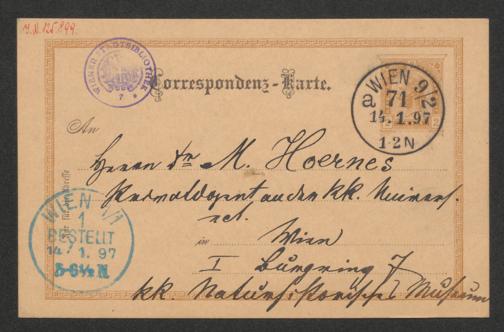 I.N. 125.899
WIENER STADTBIBLIOTHEK
Correspondenz-Karte.
a WIEN 9/2
71
14.1.97
1-2N
An
Herrn Dr M. Hoernes
Privatdozent an der kk. Univers.
etc.
in Wien
I Burgring 7
kk. Naturhistorisches Museum
WIEN 1/1
1
BESTELLT
14.1.97